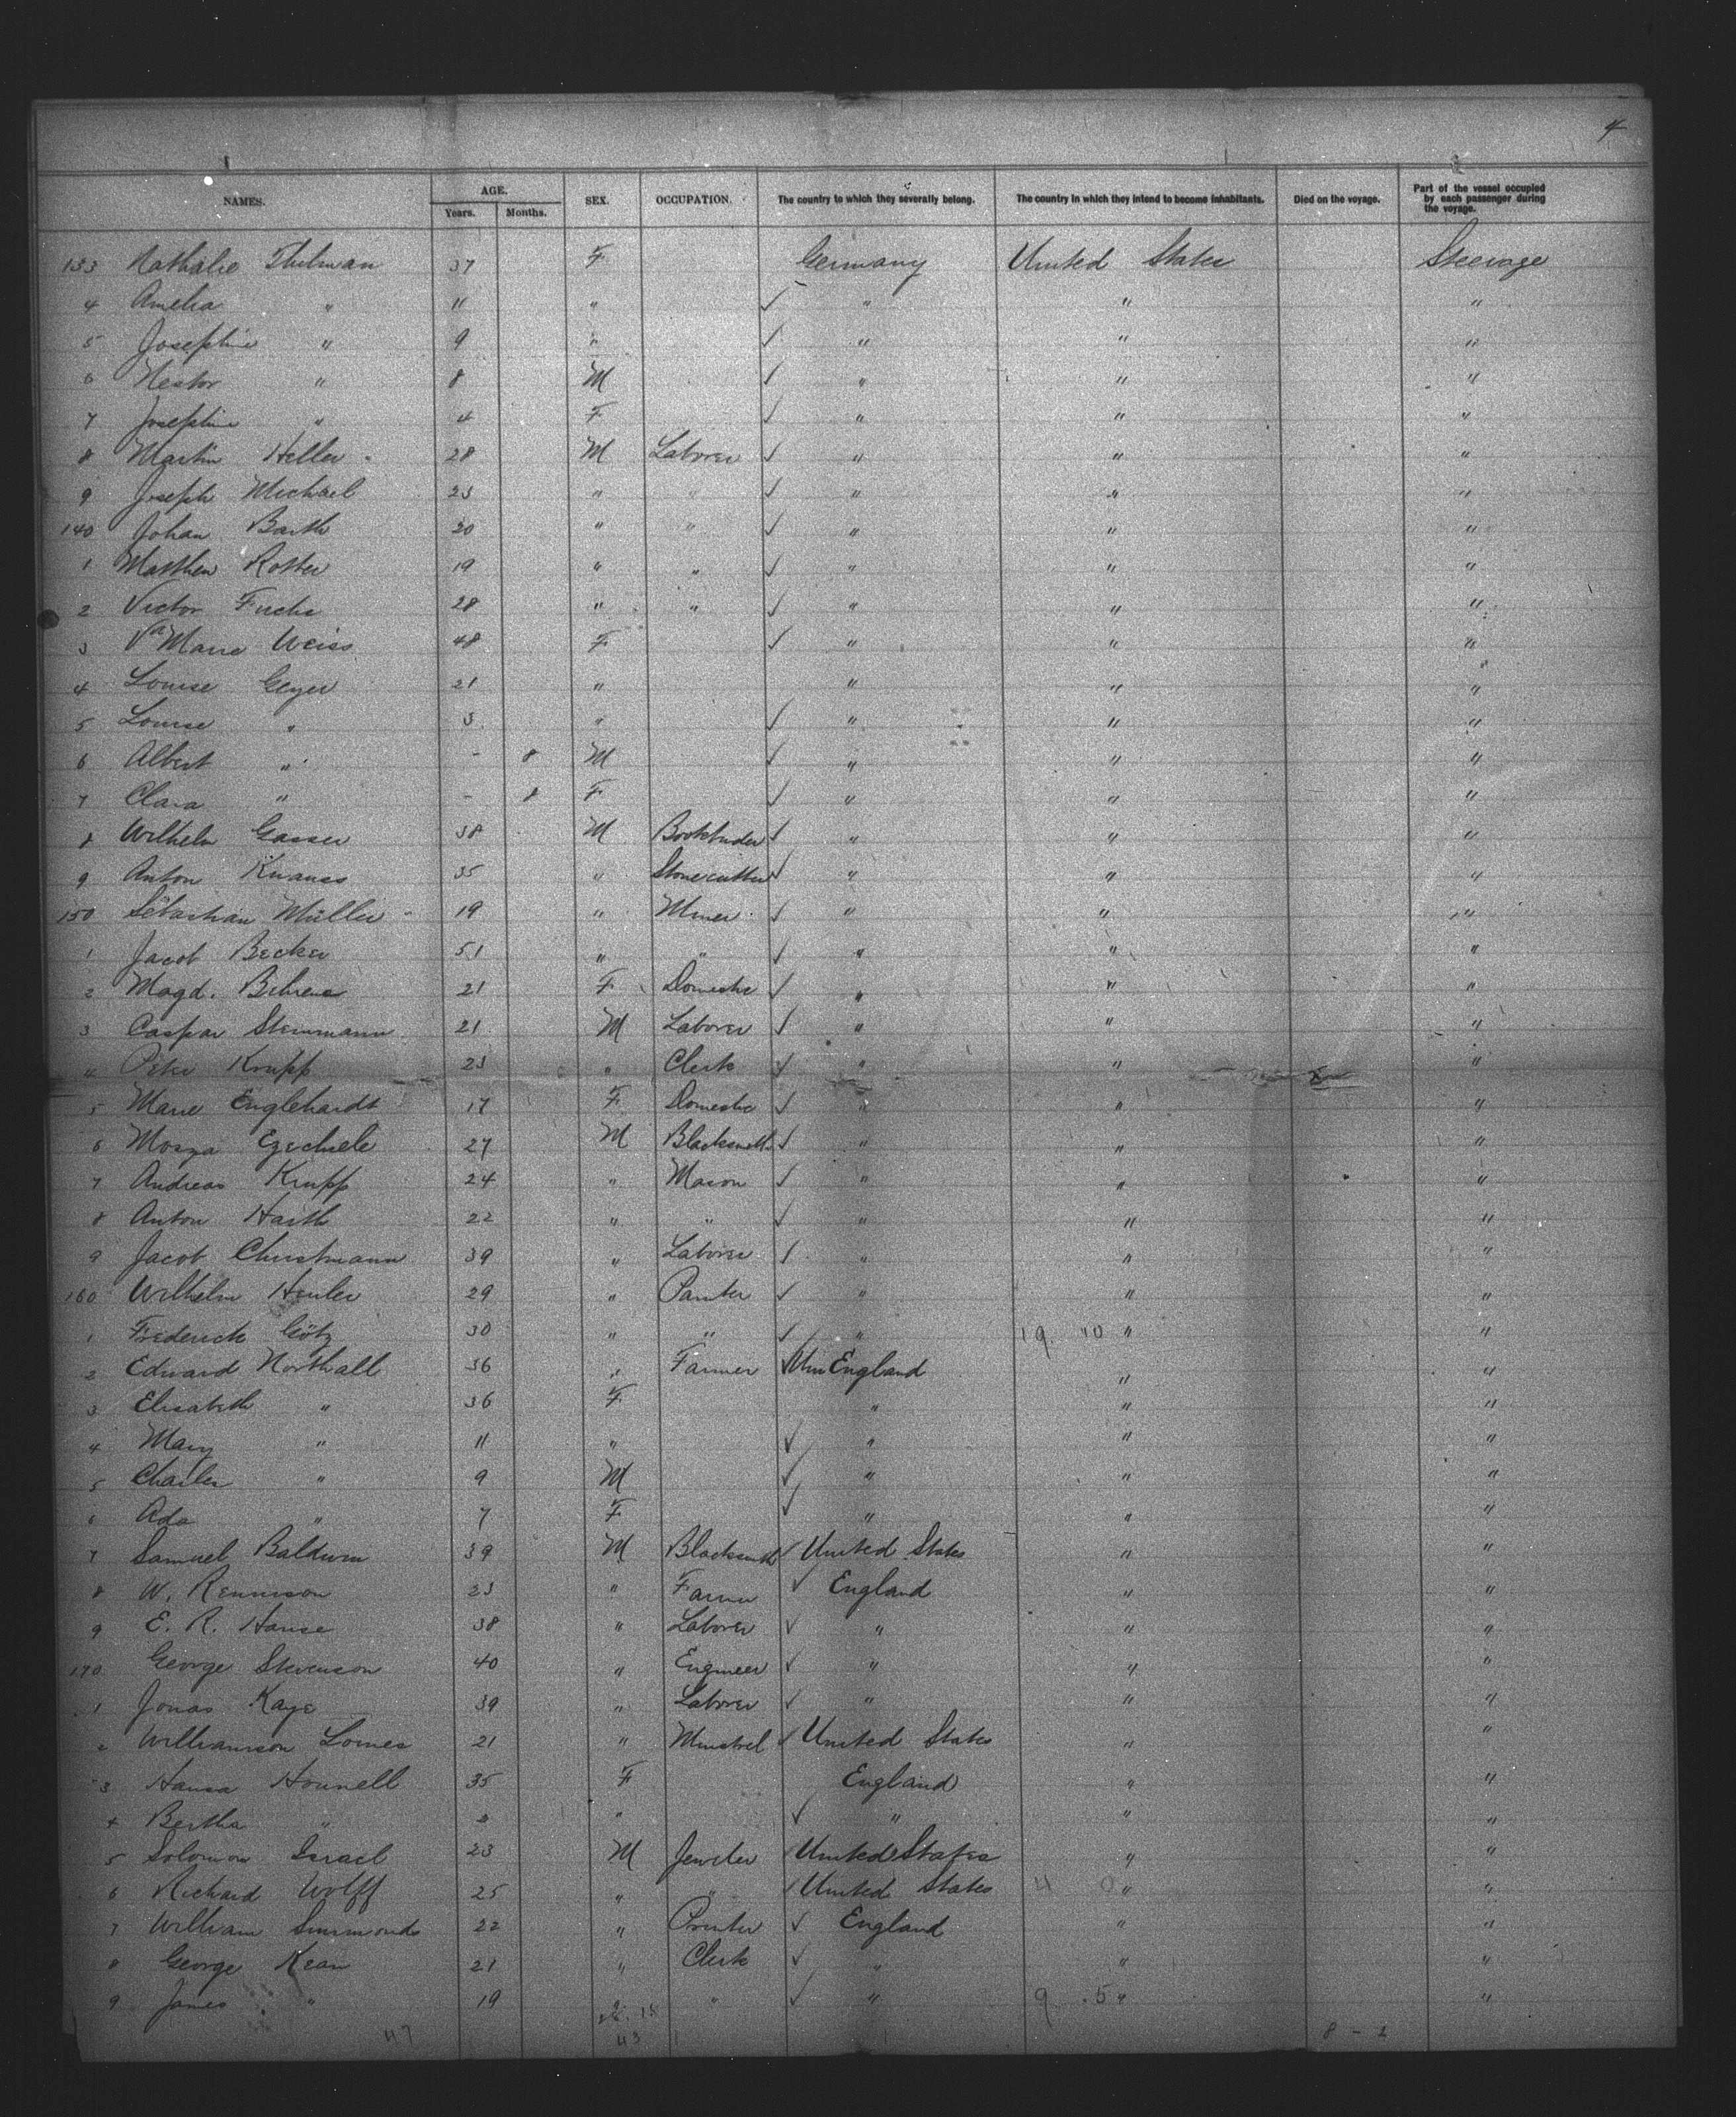 4
NAMES. AGE. Years. Months. SEX. OCCUPATION. The country to which they severally belong. The country in which they intend to become inhabitants. Died on the voyage. Part of the vessel occupied by each passenger during the voyage.
133 Nathalie Thilman 37 F Germany United States Steerage
4 Amelia " 11 " ✓ " " "
5 Josephine " 9 " ✓ " " "
6 Nestor " 8 M ✓ " " "
7 Josephine " 4 F ✓ " " "
8 Martin Heller 28 M Laborer ✓ " " "
9 Joseph Michael 23 " " ✓ " " "
140 Johan Barth 20 " " ✓ " " "
1 Matthew Rotter 19 " " ✓ " " "
2 Victor Fuchs 28 " " ✓ " " "
3 Va Marie Weiss 48 F ✓ " " "
4 Louise Geyer 21 " " " "
5 Louise " 3 " ✓ " " "
6 Albert " - 8 M ✓ " " "
7 Clara " - 8 F ✓ " " "
8 Wilhelm Gasser 38 M Bookbinder ✓ " " "
9 Anton Knauss 35 " Stonecutter ✓ " " "
150 Sebastian Müller 19 " Miner ✓ " " "
1 Jacob Becker 51 " " ✓ " " "
2 Magd. Behrens 21 F Domestic ✓ " " "
3 Caspar Steinmann 21 M Laborer ✓ " " "
4 Peter Krupp 23 " Clerk ✓ " " "
5 Marie Englehardt 17 F Domestic ✓ " " "
6 Mosza Ezechiele 27 M Blacksmith ✓ " " "
7 Andreas Krupp 24 " Mason ✓ " " "
8 Anton Harth 22 " " ✓ " " "
9 Jacob Christmann 39 " Laborer ✓ " " "
160 Wilhelm Henler 29 " Painter ✓ " " "
1 Frederick Götz 30 " " ✓ " 19 10 " "
2 Edward Northall 36 " Farmer England " "
3 Elisabeth " 36 F " " "
4 Mary " 11 " ✓ " " "
5 Charles " 9 M ✓ " " "
6 Ada " 7 F ✓ " " "
7 Samuel Baldwin 39 M Blacksmith ✓ United States " "
8 W. Rennison 23 " Farmer ✓ England " "
9 E. R. Hanse 38 " Laborer ✓ " " "
170 George Stevenson 40 " Engineer ✓ " " "
1 Jonas Kaye 39 " Laborer ✓ " " "
2 Williamson Lomes 21 " Minstrel ✓ United States " "
3 Hanna Hounell 35 F England " "
4 Bertha " 2 " ✓ " " "
5 Solomon Israel 23 M Jeweler ✓ United States " "
6 Richard Wolff 25 " " ✓ United States 4 0 " "
7 William Simmonds 22 " Printer ✓ England " "
8 George Kean 21 " Clerk ✓ " " "
9 James " 19 " " ✓ " 9 5 " "
47 43 8 - 2